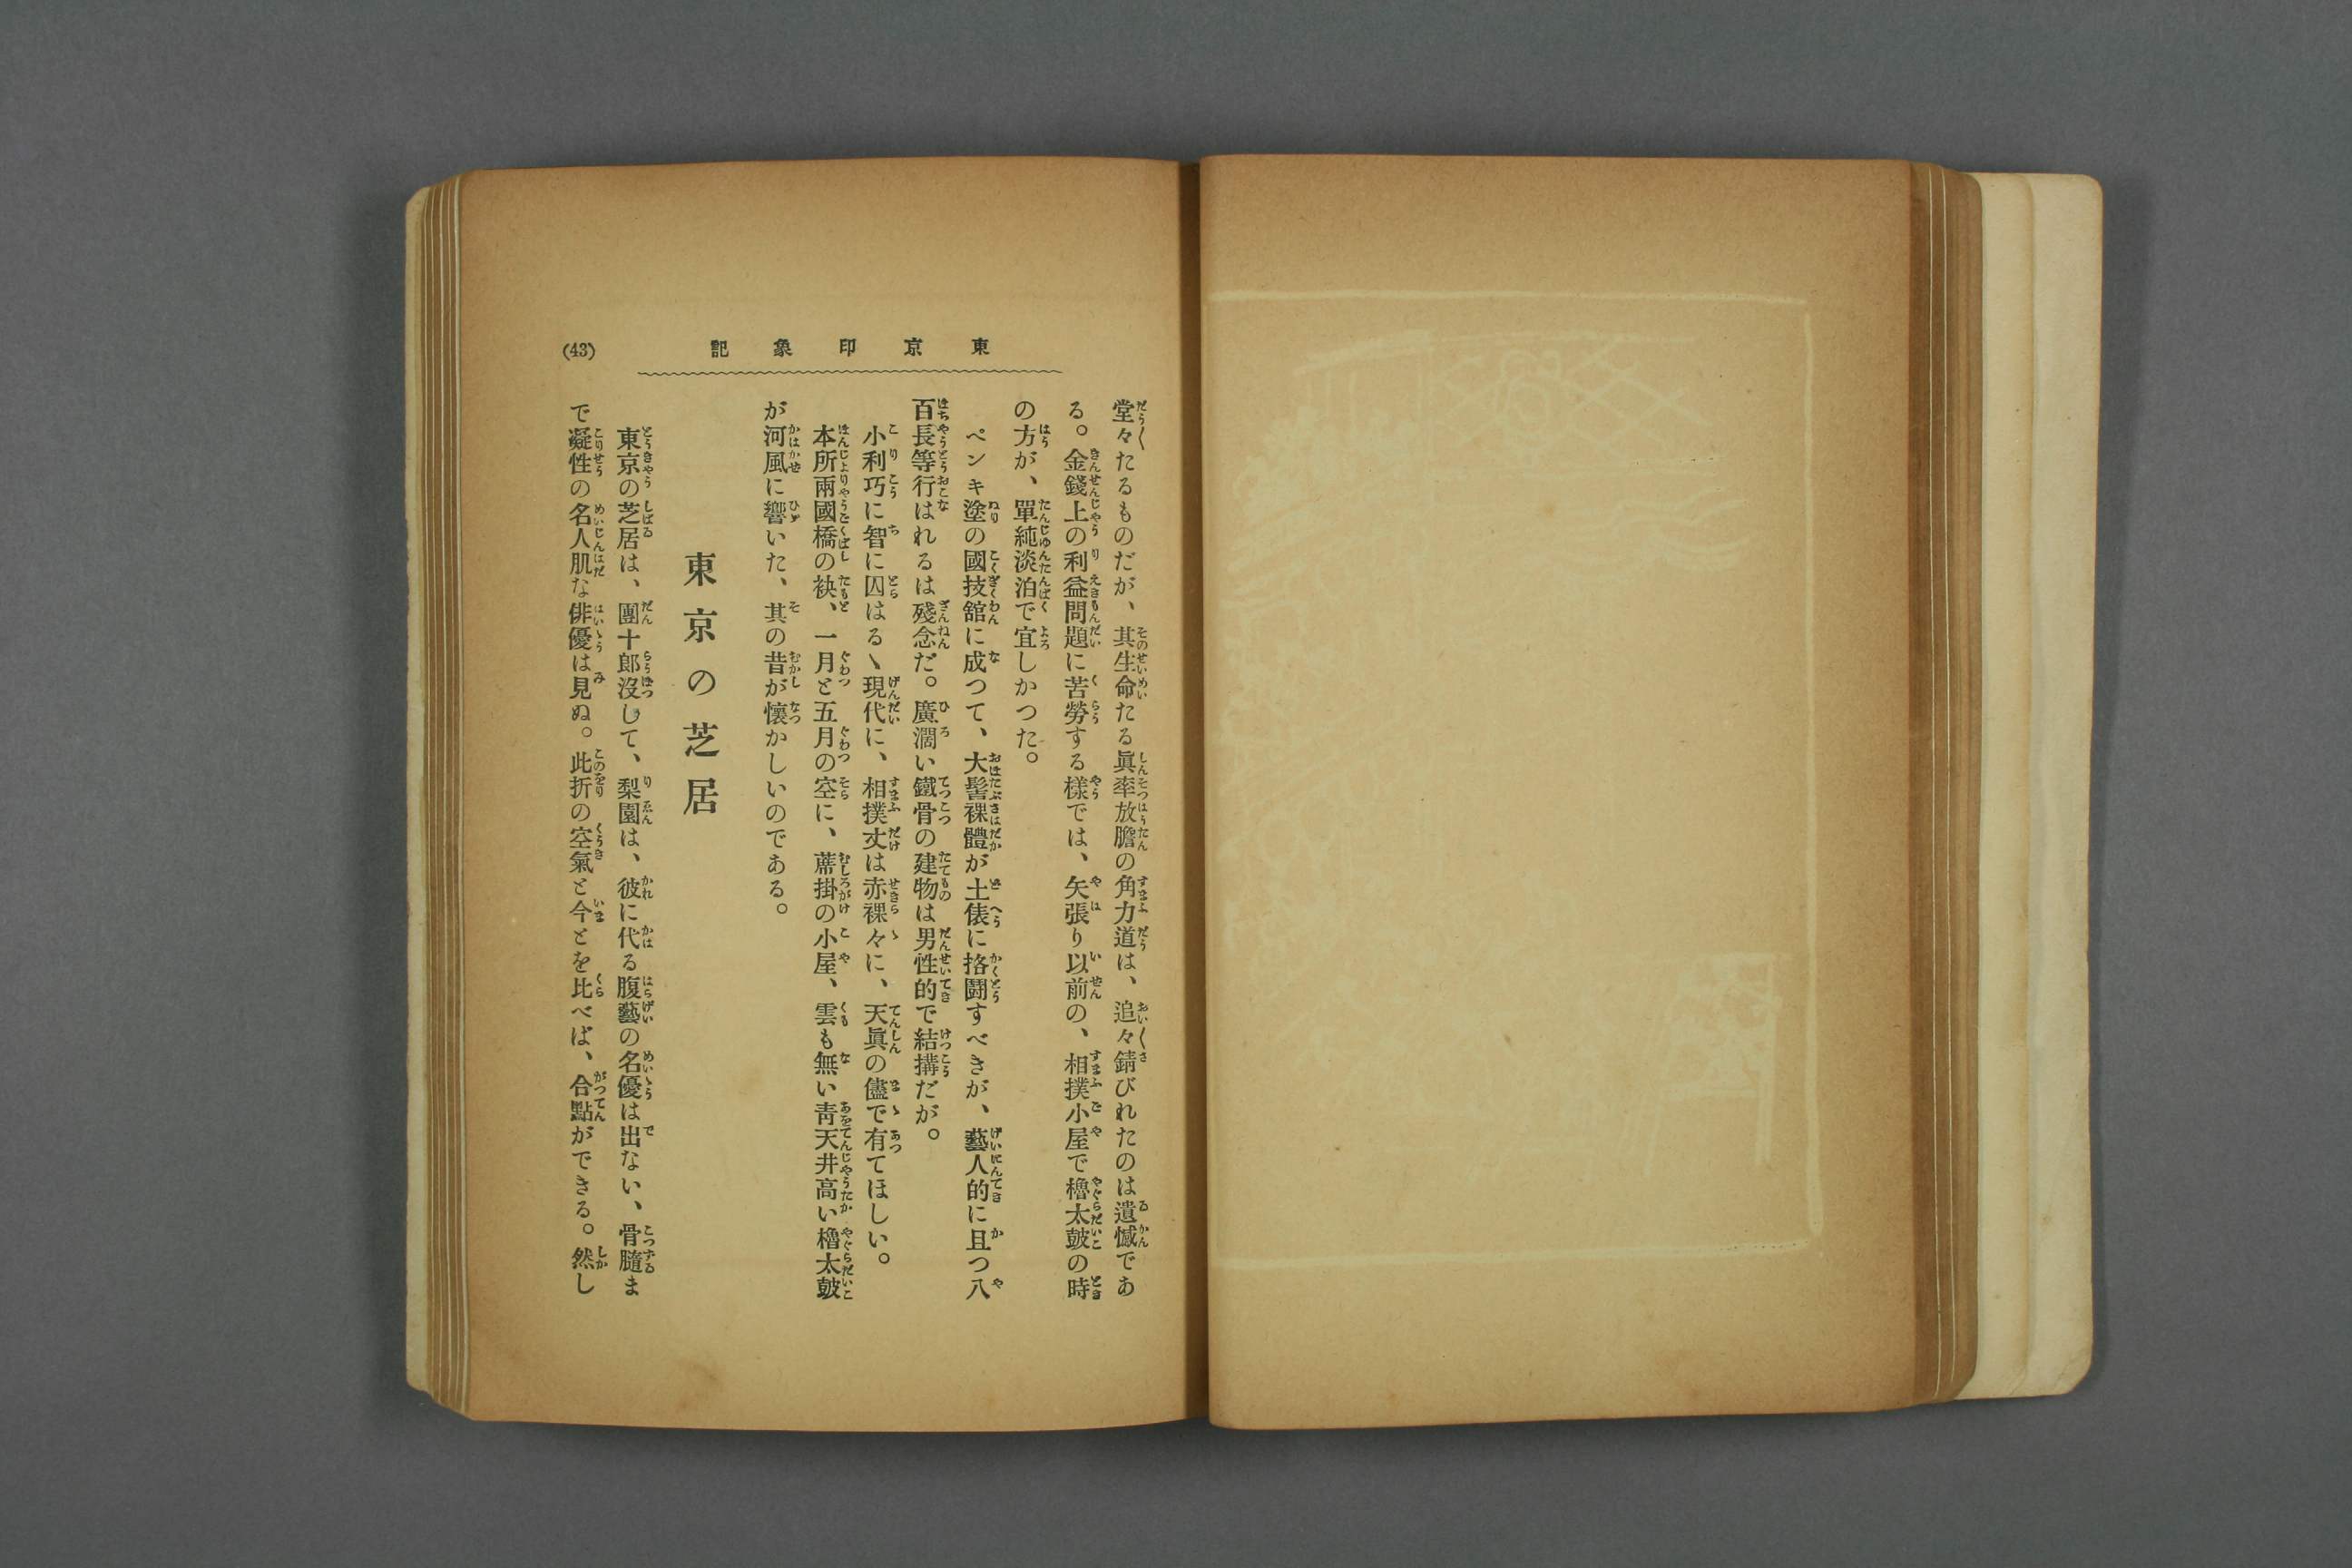 東京印象記
(43)
堂々たるものだが、其生命たる眞率放膽の角力道は、追々錆びれたのは遺憾であ
る。金錢上の利益問題に苦勞する樣では、矢張り以前の、相撲小屋で櫓太皷の時
の方が、單純淡泊で宜しかつた。
ペンキ塗の國技舘に成つて、大髻裸體が土俵に挌鬪すべきが、藝人的に且つ八
百長等行はれるは殘念だ。廣濶い鐵骨の建物は男性的で結搆だが。
小利巧に智に囚はるヽ現代に、相撲丈は赤裸々に、天眞の儘で有てほしい。
本所兩國橋の袂、一月と五月の空に、蓆掛の小屋、雲も無い靑天井高い櫓太皷
が河風に響いた、其の昔が懷かしいのである。
東京の芝居
東京の芝居は、團十郎沒して、梨園は、彼に代る腹藝の名優は出ない、骨髓ま
で凝性の名人肌な俳優は見ぬ。此折の空氣と今とを比べば、合點ができる。然し